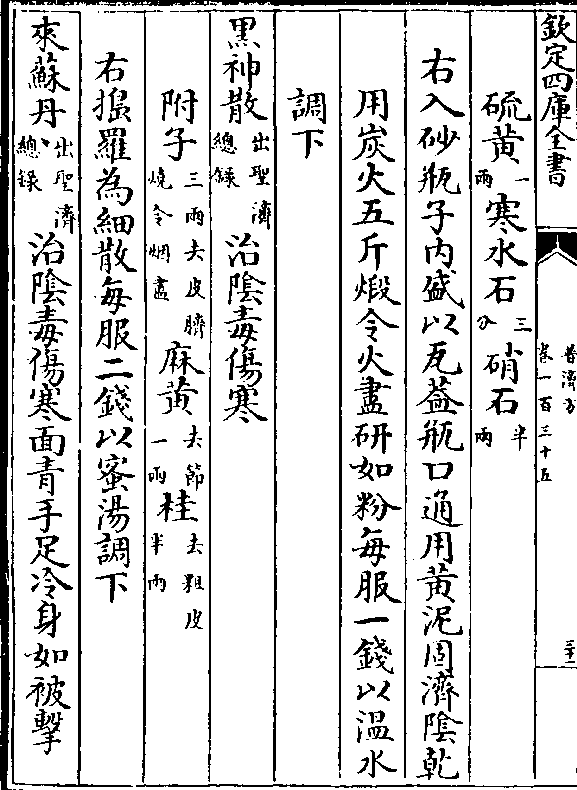 欽定四庫全書
普濟方
卷一百三十五
三十一
硫黃一兩寒水石三分硝石半兩
右入砂瓶子内盛以瓦葢瓶口通用黃泥固濟陰乾
用炭火五斤煅令火盡研如粉每服一錢以溫水
調下
黑神散出聖濟總録治陰毒傷寒
附子三兩去皮臍燒令烟盡麻黃去節一兩桂去粗皮半兩
右搗羅為細散每服二錢以蜜湯調下
來蘇丹出聖濟總録治陰毒傷寒面青手足冷身如被擊